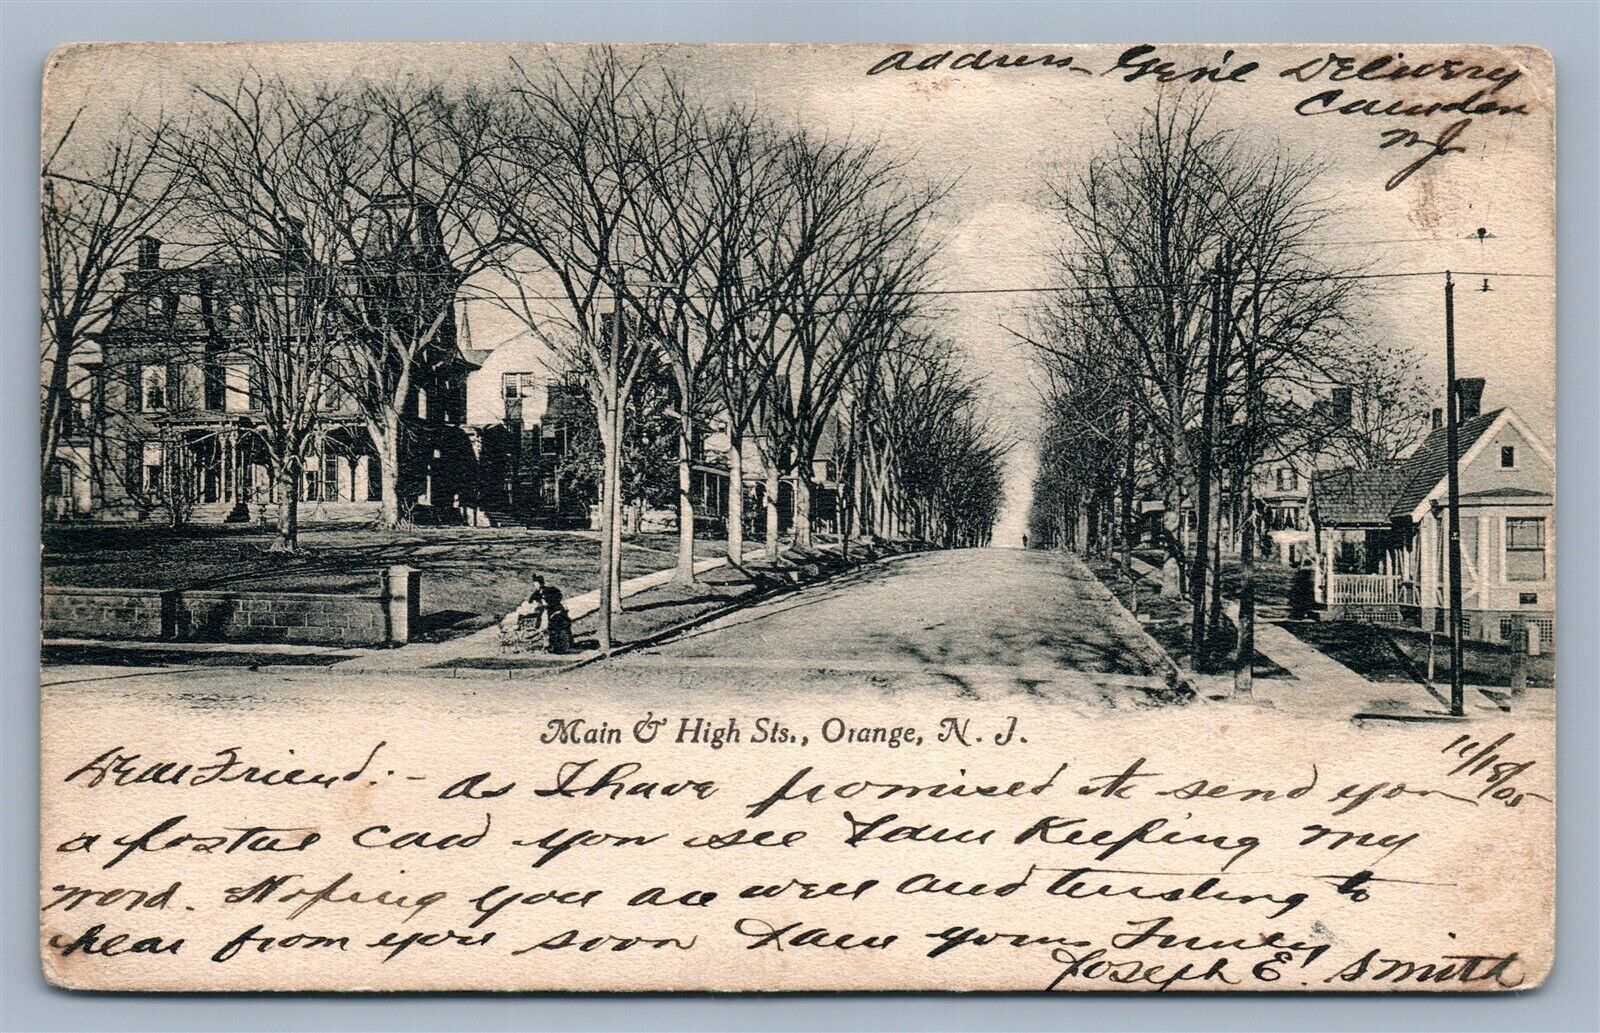 Address - Gen'l Delivery
Camden
NJ
Main & High Sts., Orange, N. J.
11/15/05
Dear Friend:- As I have promised to send you
a postal card you see I am Keeping my
word. Hoping you are well and trusting to
hear from you soon I am yours Truely
Joseph E. Smith